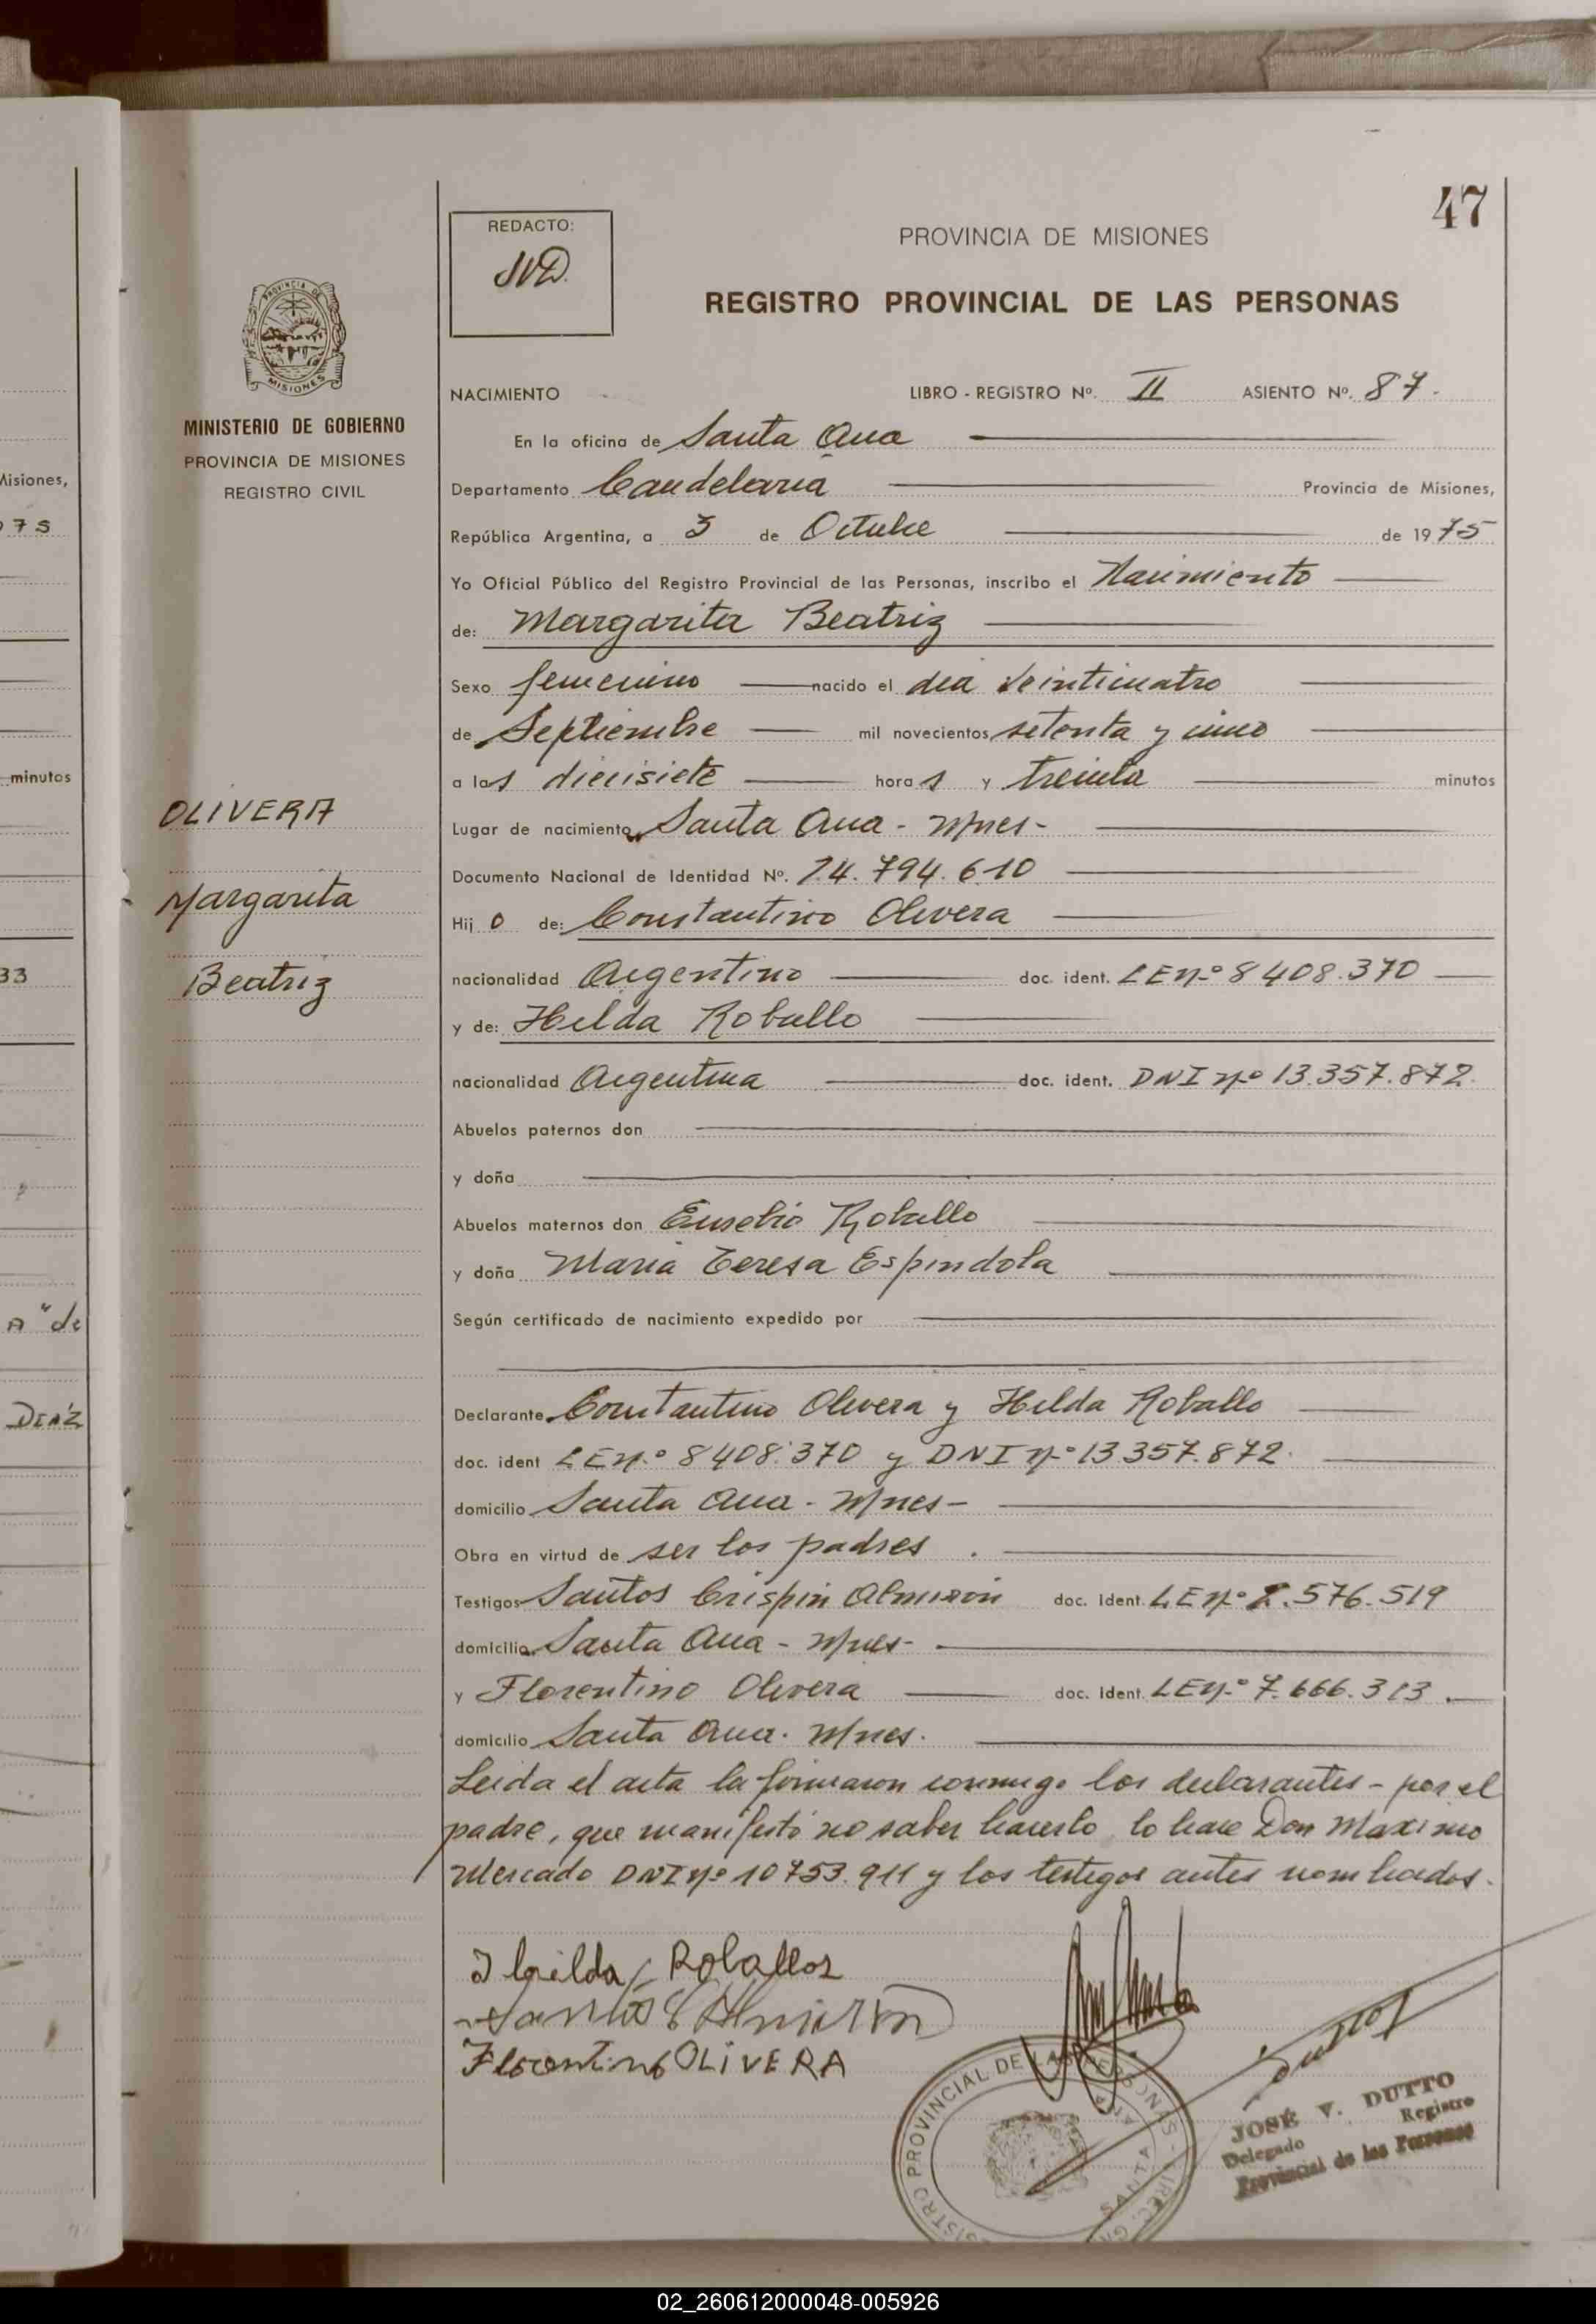 47
REDACTO:
JVD.
PROVINCIA DE MISIONES
REGISTRO PROVINCIAL DE LAS PERSONAS
PROVINCIA DE MISIONES
MINISTERIO DE GOBIERNO
PROVINCIA DE MISIONES
REGISTRO CIVIL
NACIMIENTO LIBRO - REGISTRO Nº. II ASIENTO Nº. 87.
En la oficina de Santa Ana
Departamento Candelaria Provincia de Misiones,
República Argentina, a 3 de Octubre de 1975
Yo Oficial Público del Registro Provincial de las Personas, inscribo el Nacimiento
de: Margarita Beatriz
Sexo femenino nacido el día veinticuatro
de Septiembre mil novecientos setenta y cinco
a las diecisiete horas y treinta minutos
OLIVERA
Margarita
Beatriz
Lugar de nacimiento Santa Ana - Mnes-
Documento Nacional de Identidad Nº. 24.794.610
Hijo de: Constantino Olivera
nacionalidad Argentino doc. ident. LE nº 8408.370
y de: Hilda Roballo
nacionalidad Argentina doc. ident. DNI nº 13.357.872
Abuelos paternos don
y doña
Abuelos maternos don Eusebio Roballo
y doña Maria Teresa Espindola
Según certificado de nacimiento expedido por
Declarante Constantino Olivera y Hilda Roballo
doc. ident LE nº 8408.370 y DNI nº 13.357.872.
domicilio Santa Ana - Mnes-
Obra en virtud de ser los padres .
Testigos Santos Crispin Almirón doc. Ident. LE nº .576.519
domicilio Santa Ana - Mnes-
y Florentino Olivera doc. Ident. LE nº 7.666.313.
domicilio Santa Ana. Mnes.
Leida el acta la firmaron conmigo los declarantes - por el
padre, que manifestó no saber hacerlo, lo hace Don Maximo
Mercado DNI nº 10753.911 y los testigos antes nombrados.
Roballos
Florentino OLIVERA
REGISTRO PROVINCIAL DE LAS PERSONAS
SANTA ANA
JOSÉ V. DUTTO
Delegado Registro
Provincial de las Personas
Misiones,
975
minutos
33
A" de
DIAZ
02_260612000048-005926